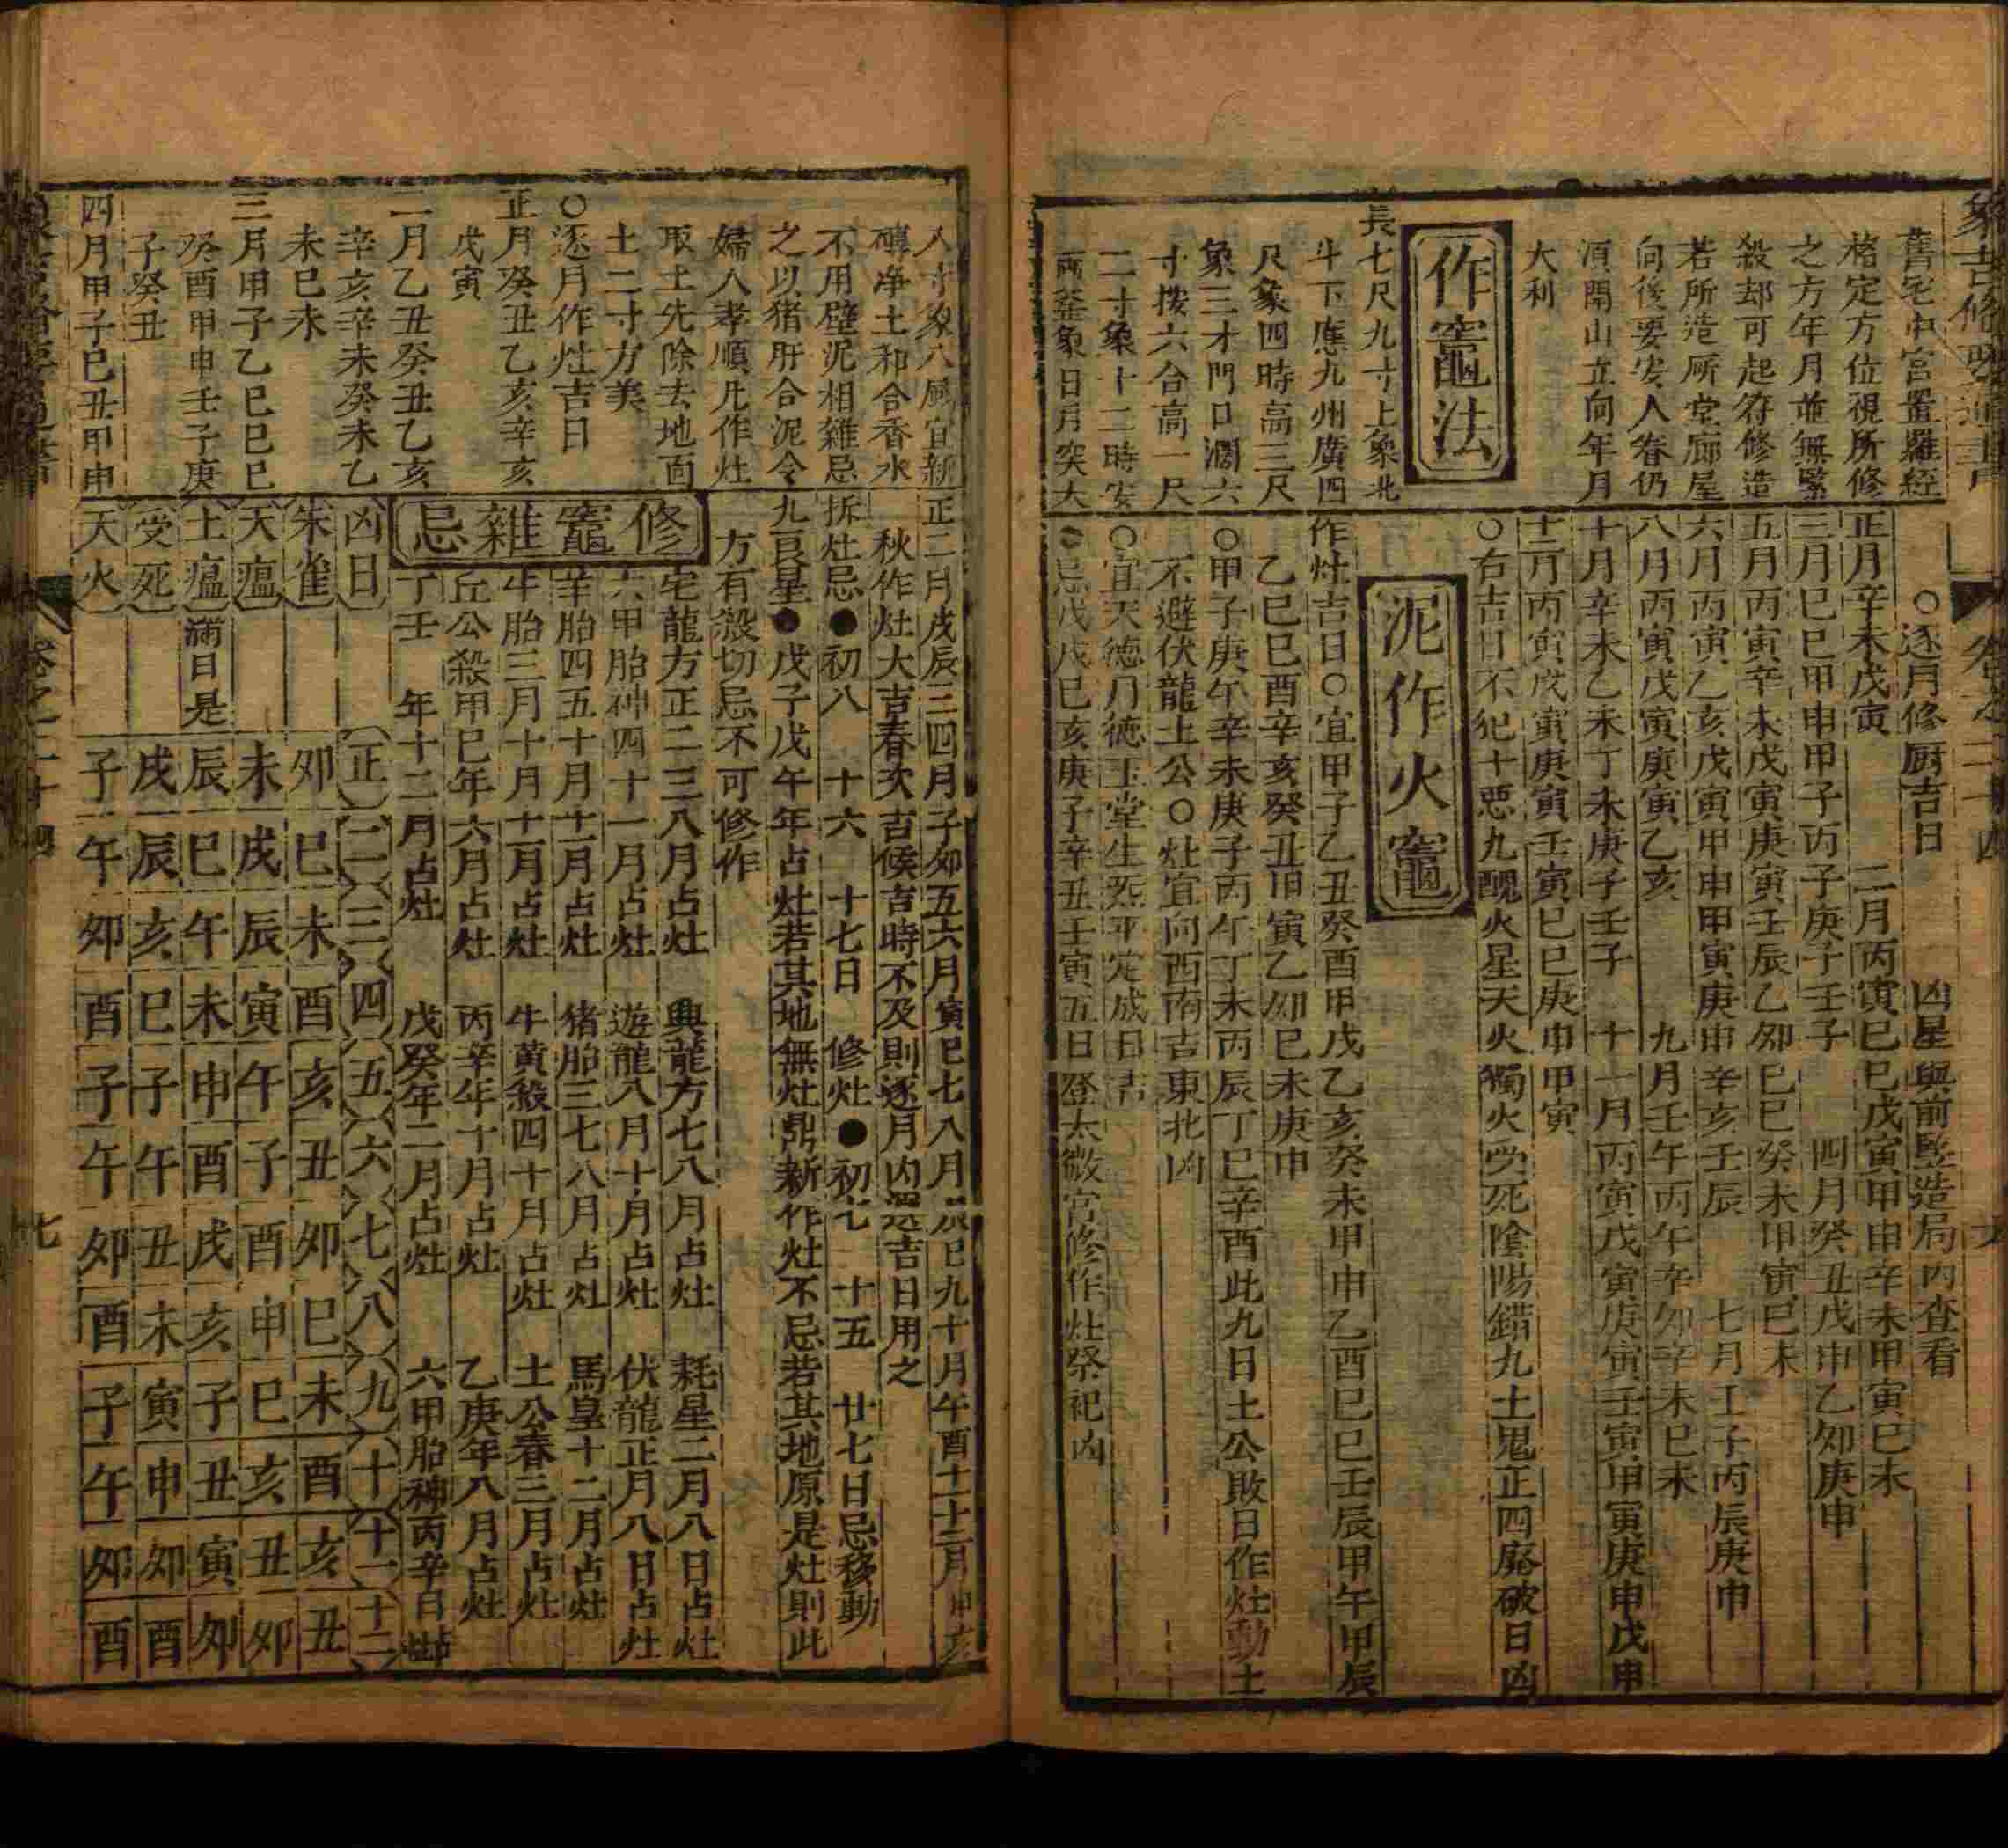 舊宅中宮置羅經
格定方位視所修
之方年月並無緊
殺却可起符修造
若所造所堂廊屋
向後要安人眷仍
湏開山立向年月
大利
作竈法
長七尺九寸上象北
斗下應九州廣四
尺象四時高三尺
象三才門口濶六
寸撥六合高一尺
二寸象十二時安
兩釜象日月突大
○逐月修厨吉日 凶星與前竪造局内查看
正月辛未戊寅 二月丙寅己巳戊寅甲申辛未甲寅己未
三月己巳甲申甲子丙子庚子壬子 四月癸丑戊申乙夘庚申
五月丙寅辛未戊寅庚寅壬辰乙夘己巳癸未甲寅己未
六月丙寅乙亥戊寅甲申甲寅庚申辛亥壬辰 七月壬子丙辰庚申
八月丙寅戊寅庚寅乙亥 九月壬午丙午辛夘辛未己未
十月辛未乙未丁未庚子壬子 十一月丙寅戊寅庚寅壬寅甲寅庚申戊申
十二月丙寅戊寅庚寅壬寅己巳庚申甲寅
○右吉日不犯十惡九醜火星天火獨火受死陰陽錯九土鬼正四廢破日凶
泥作火竈
作灶吉日○宜甲子乙丑癸酉甲戊乙亥癸未甲申乙酉己巳壬辰甲午甲辰
乙巳己酉辛亥癸丑旧寅乙夘己未庚申
○甲子庚午辛未庚子丙午丁未丙辰丁巳辛酉此九日土公敗日作灶動土
不避伏龍土公○灶宜向西南吉東北凶
○宜天德月德玉堂生炁平定成日吉
●忌戊戌己亥庚子辛丑壬寅五日登太微宮修作灶祭祀凶
八寸象八風宜新
磚净土和合香水
不用壁泥相雜忌
之以猪肝合泥令
婦人孝順凡作灶
取土先除去地面
土二寸方美
○逐月作灶吉日
正月癸丑乙亥辛亥
戊寅
二月乙丑癸丑乙亥
辛亥辛未癸未乙
未己未
三月甲子乙巳己巳
癸酉甲申壬子庚
子癸丑
四月甲子己丑甲申
正二月戌辰三四月子夘五六月寅巳七八月辰巳九十月午酉十一十二月申亥
秋作灶大吉春次吉候吉時不及則逐月内選吉日用之
拆灶忌●初八 十六 十七日 修灶●初七 十五 廿七日忌移動
九良星●戊子戊午年占灶若其地無灶鼎新作灶不忌若其地原是灶則此
方有殺切忌不可修作
修竈雜忌
宅龍方正二三八月占灶 興龍方七八月占灶 耗星二月八日占灶
六甲胎神四十一月占灶 遊龍八月十月占灶 伏龍正月八日占灶
羊胎四五十月十一月占灶 猪胎三七八月占灶 馬皇十二月占灶
牛胎三月十月十一月占灶 牛黄殺四十月占灶 土公春三月占灶
丘公殺甲己年六月占灶 丙辛年十月占灶 乙庚年八月占灶
丁壬 年十二月占灶 戊癸年二月占灶 六甲胎神丙辛日占灶
凶日 正 二 三 四 五 六 七 八 九 十 十一 十二
朱雀 夘 巳 未 酉 亥 丑 夘 巳 未 酉 亥 丑
天瘟 未 戌 辰 寅 午 子 酉 申 巳 亥 丑 夘
土瘟 滿日是 辰 巳 午 未 申 酉 戌 亥 子 丑 寅 夘
受死 戌 辰 亥 巳 子 午 丑 未 寅 申 夘 酉
天火 子 午 夘 酉 子 午 夘 酉 子 午 夘 酉